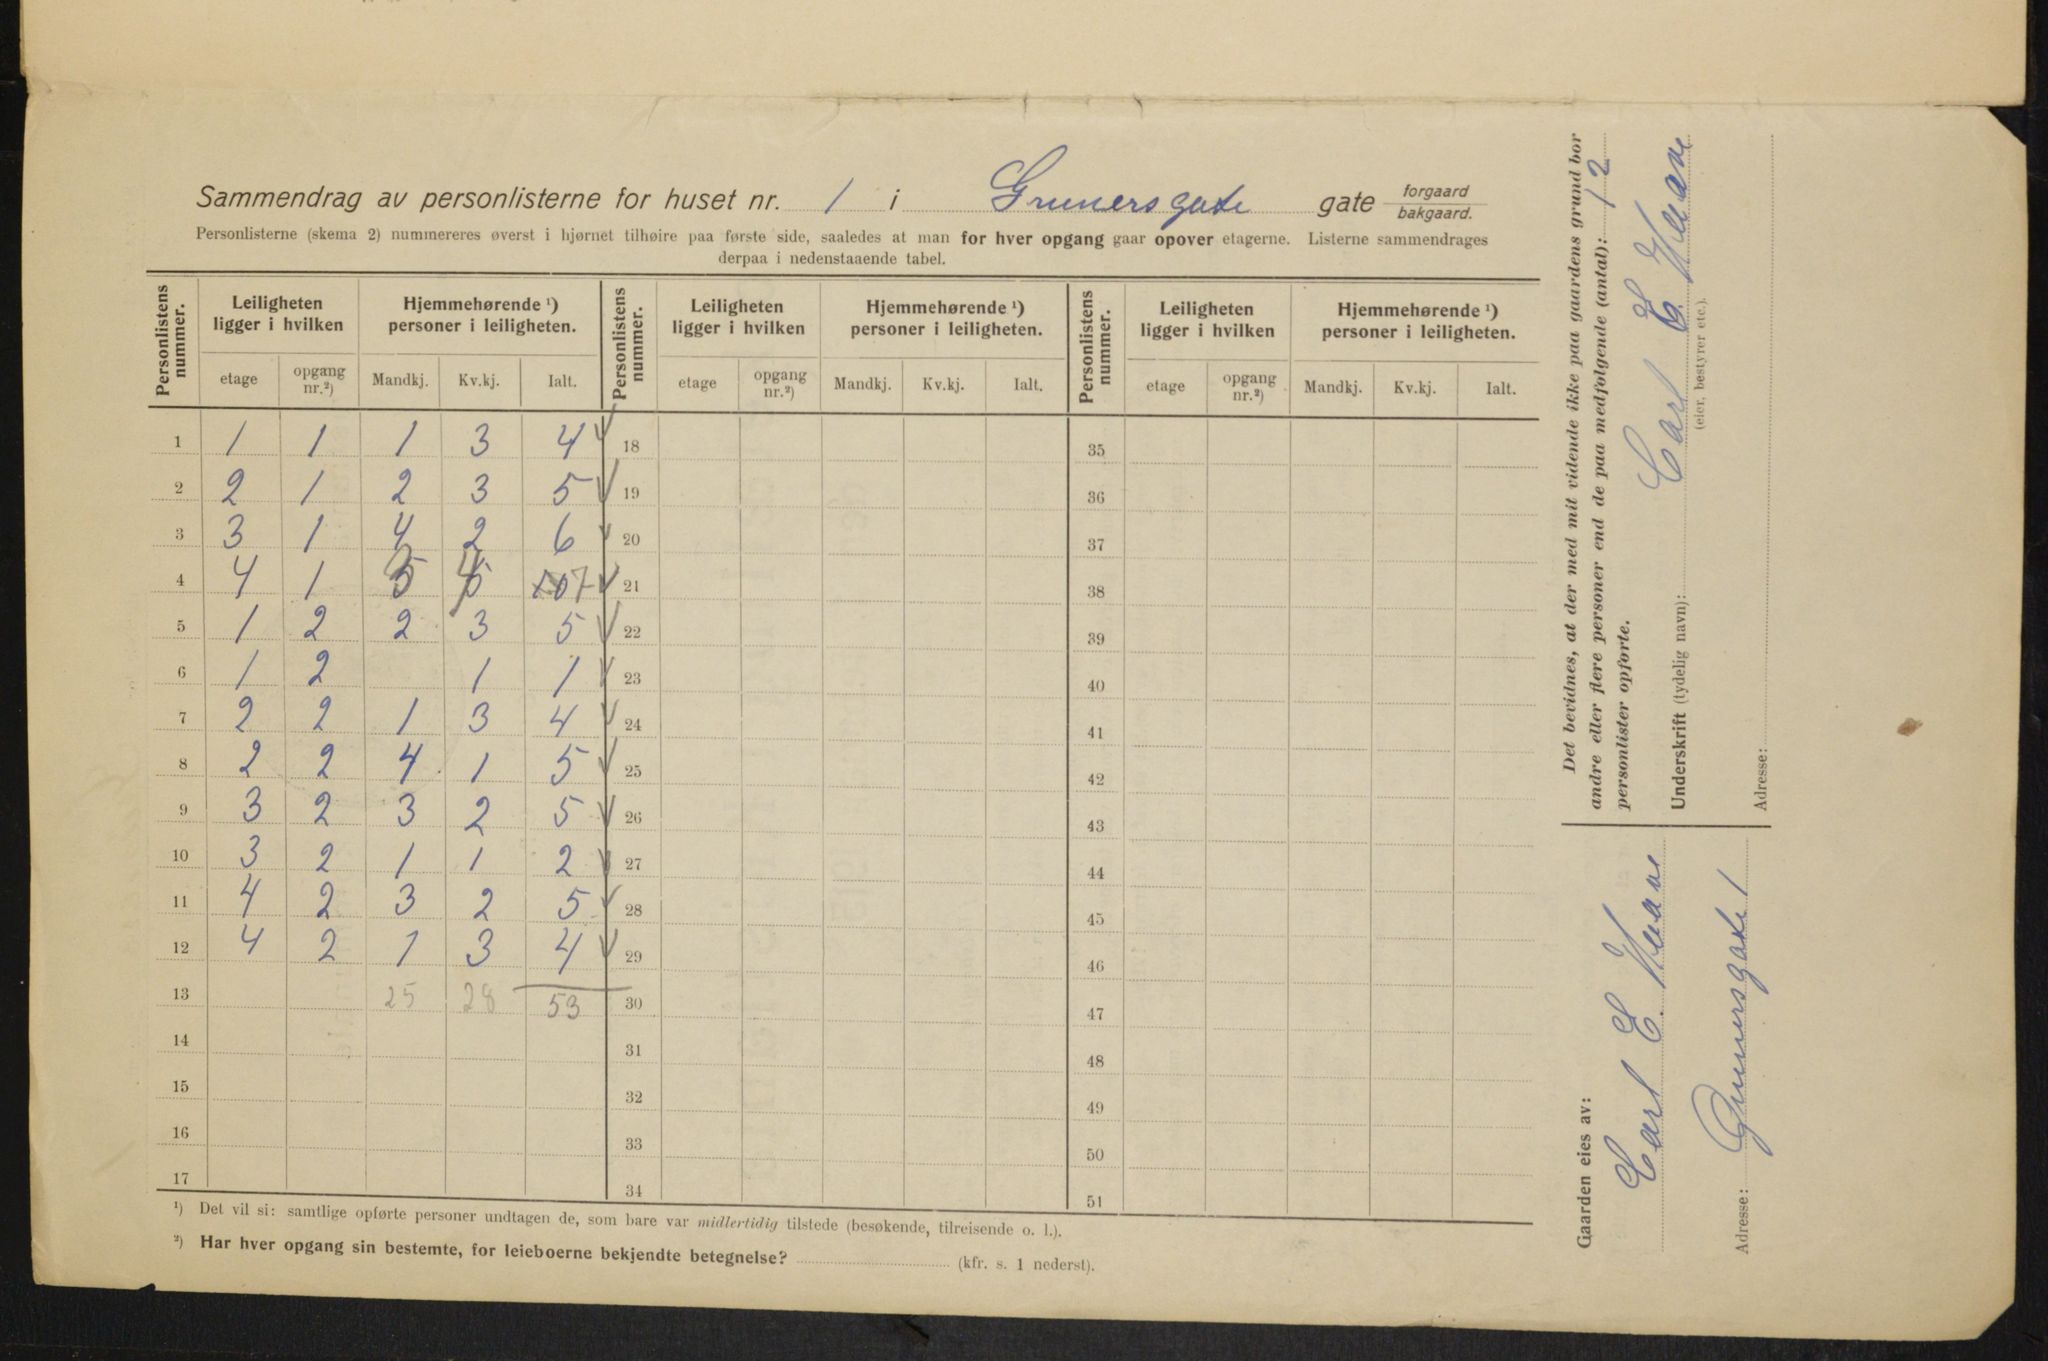 Sammendrag av personlisterne for huset nr. 1 i Grünersgate gate forgaard bakgaard.
Personlisterne (skema 2) nummereres øverst i hjørnet tilhøire paa første side, saaledes at man for hver opgang gaar opover etagerne. Listerne sammendrages
derpaa i nedenstaaende tabel.
Personlistens nummer. Leiligheten ligger i hvilken Hjemmehørende ¹) personer i leiligheten. Personlistens nummer. Leiligheten ligger i hvilken Hjemmehørende ¹) personer i leiligheten. Personlistens nummer. Leiligheten ligger i hvilken Hjemmehørende ¹) personer i leiligheten.
etage opgang nr.²) Mandkj. Kv.kj. Ialt. etage opgang nr.²) Mandkj. Kv.kj. Ialt. etage opgang nr.²) Mandkj. Kv.kj. Ialt.
1 1 1 1 3 4 18 35
2 2 1 2 3 5 19 36
3 3 1 4 2 6 20 37
4 4 1 5 3 5 4 10 7 21 38
5 1 2 2 3 5 22 39
6 1 2 1 1 23 40
7 2 2 1 3 4 24 41
8 2 2 4 1 5 25 42
9 3 2 3 2 5 26 43
10 3 2 1 1 2 27 44
11 4 2 3 2 5 28 45
12 4 2 1 3 4 29 46
13 25 28 53 30 47
14 31 48
15 32 49
16 33 50
17 34 51
¹) Det vil si: samtlige opførte personer undtagen de, som bare var midlertidig tilstede (besøkende, tilreisende o. l.).
²) Har hver opgang sin bestemte, for leieboerne bekjendte betegnelse? (kfr. s. 1 nederst).
Det bevidnes, at der med mit vidende ikke paa gaardens grund bor
andre eller flere personer end de paa medfølgende (antal): 12
personlister opførte.
Underskrift (tydelig navn): Carl E.
(eier, bestyrer etc.).
Adresse:
Gaarden eies av:
Carl E.
Adresse: Grünersgate 1